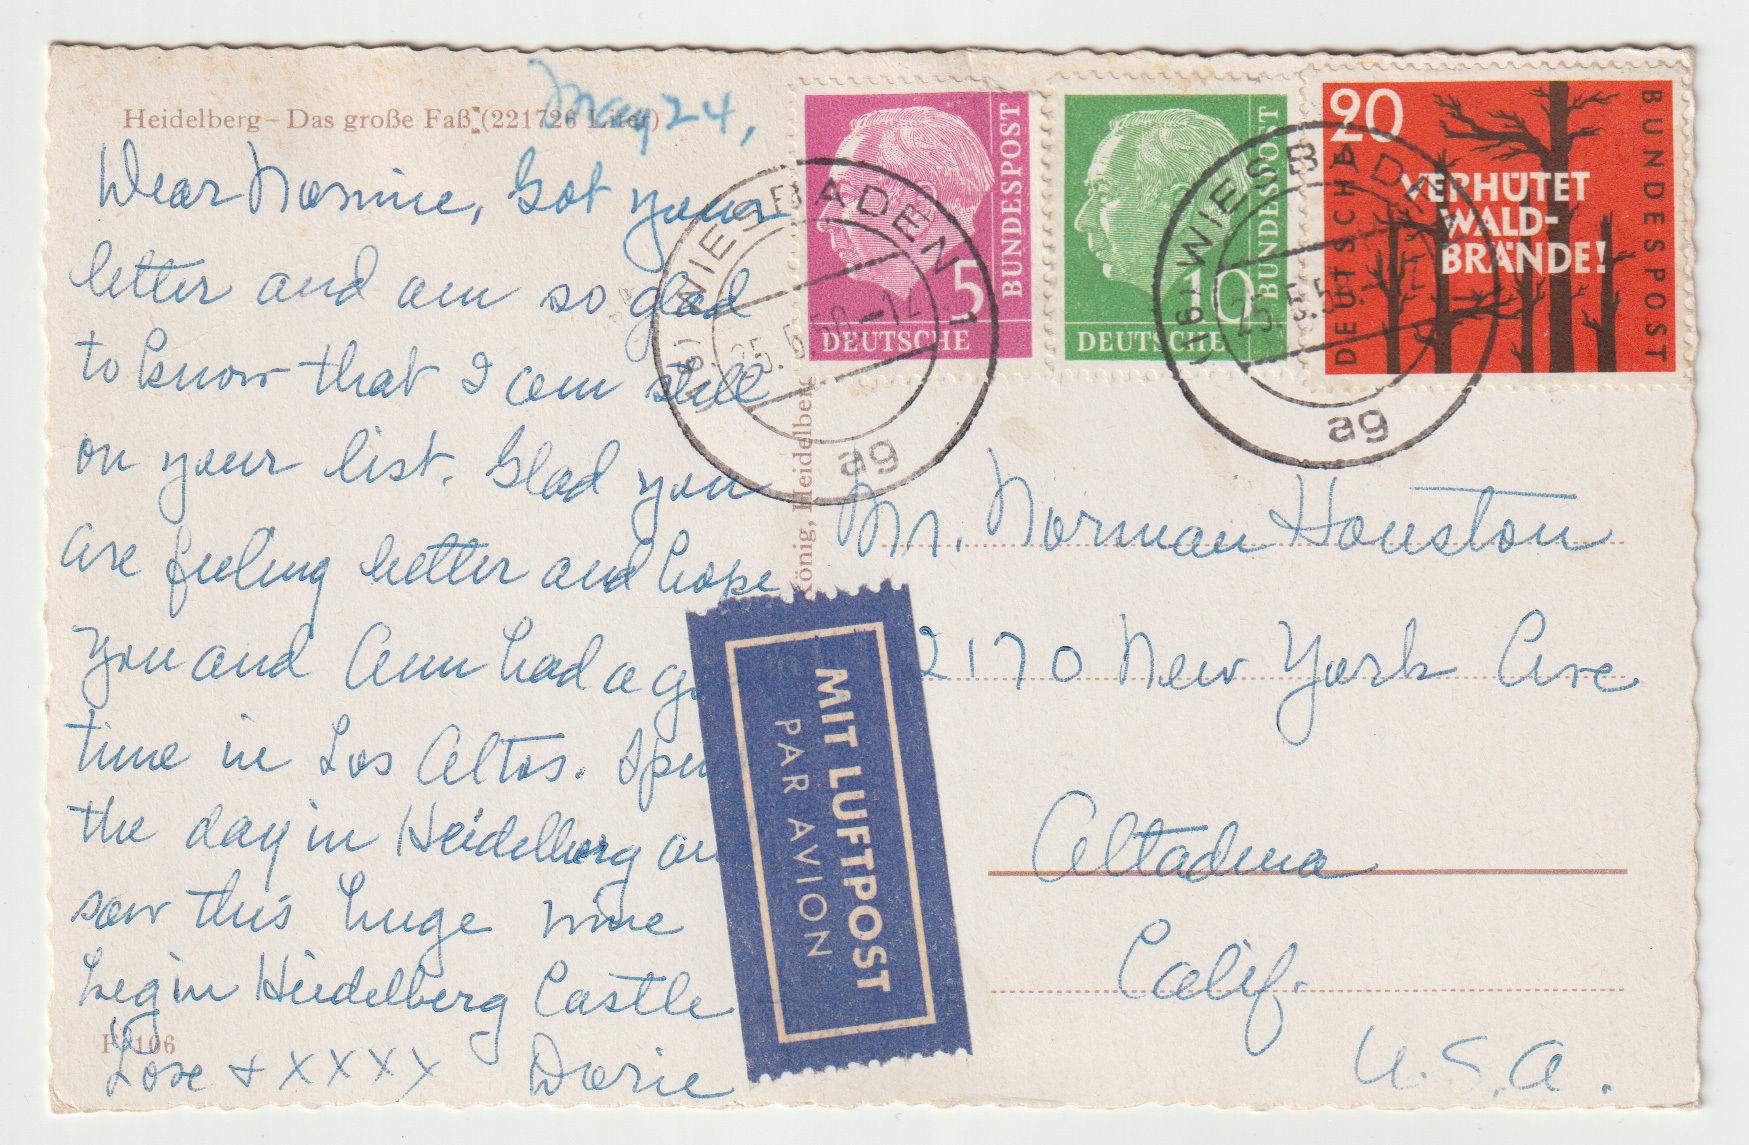 Heidelberg – Das große Faß (221726 Liter)
May 24,
Dear Normie, Got your
letter and am so glad
to know that I am still
on your list. Glad you
are feeling better and hope
you and Ann had a g
time in Los Altos. Spen
the day in Heidelberg an
saw this huge wine
keg in Heidelberg Castle
Love + XXXX Dorie
F 106
König, Heidelberg
5
DEUTSCHE
BUNDESPOST
10
DEUTSCHE
BUNDESPOST
20
DEUTSCHE
BUNDESPOST
VERHÜTET
WALD-
BRÄNDE!
(16) WIESBADEN 1
25.5.58-12
ag
(16) WIESBADEN
25.5.5
ag
MIT LUFTPOST
PAR AVION
Mr. Norman Houston
2170 New York Ave
Altadena
Calif.
U.S.A.